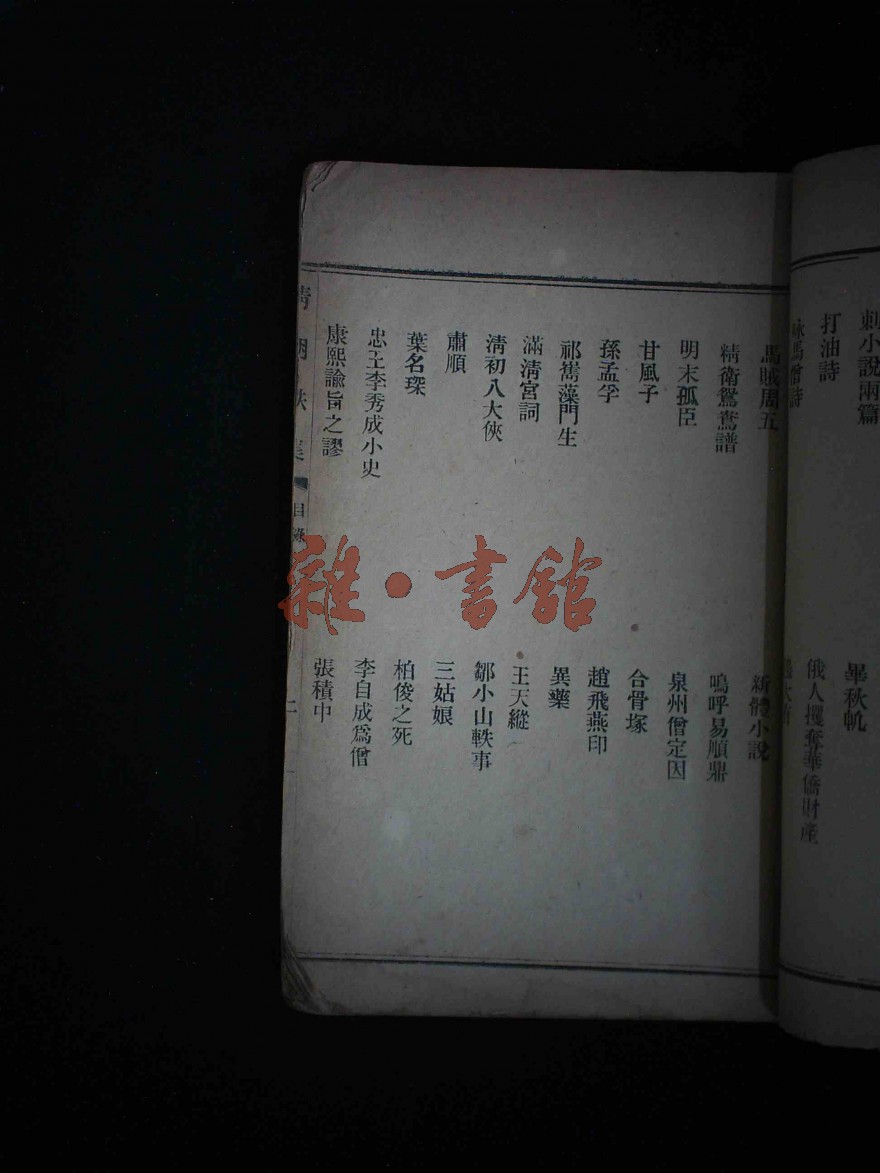 刺小說兩篇
畢秋帆
打油詩
俄人攫奪華僑財產
詠馬僧詩
馬賊周五
新體小說
精衛鴛鴦譜
嗚呼易順鼎
明末孤臣
泉州僧定因
甘風子
合骨塚
孫孟孚
趙飛燕印
祁嶲藻門生
異藥
滿清宮詞
王天縱
清初八大俠
鄒小山軼事
肅順
三姑娘
葉名琛
柏俊之死
忠王李秀成小史
李自成爲僧
康熙諭旨之謬
張積中
目錄
二
雜·書館